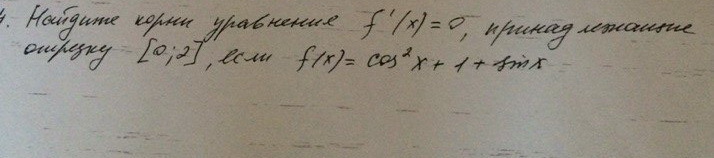 4. Найдите корни уравнения f'(x)=0, принадлежащие
отрезку [0;2], если f(x)= cos² x + 1 + sin x